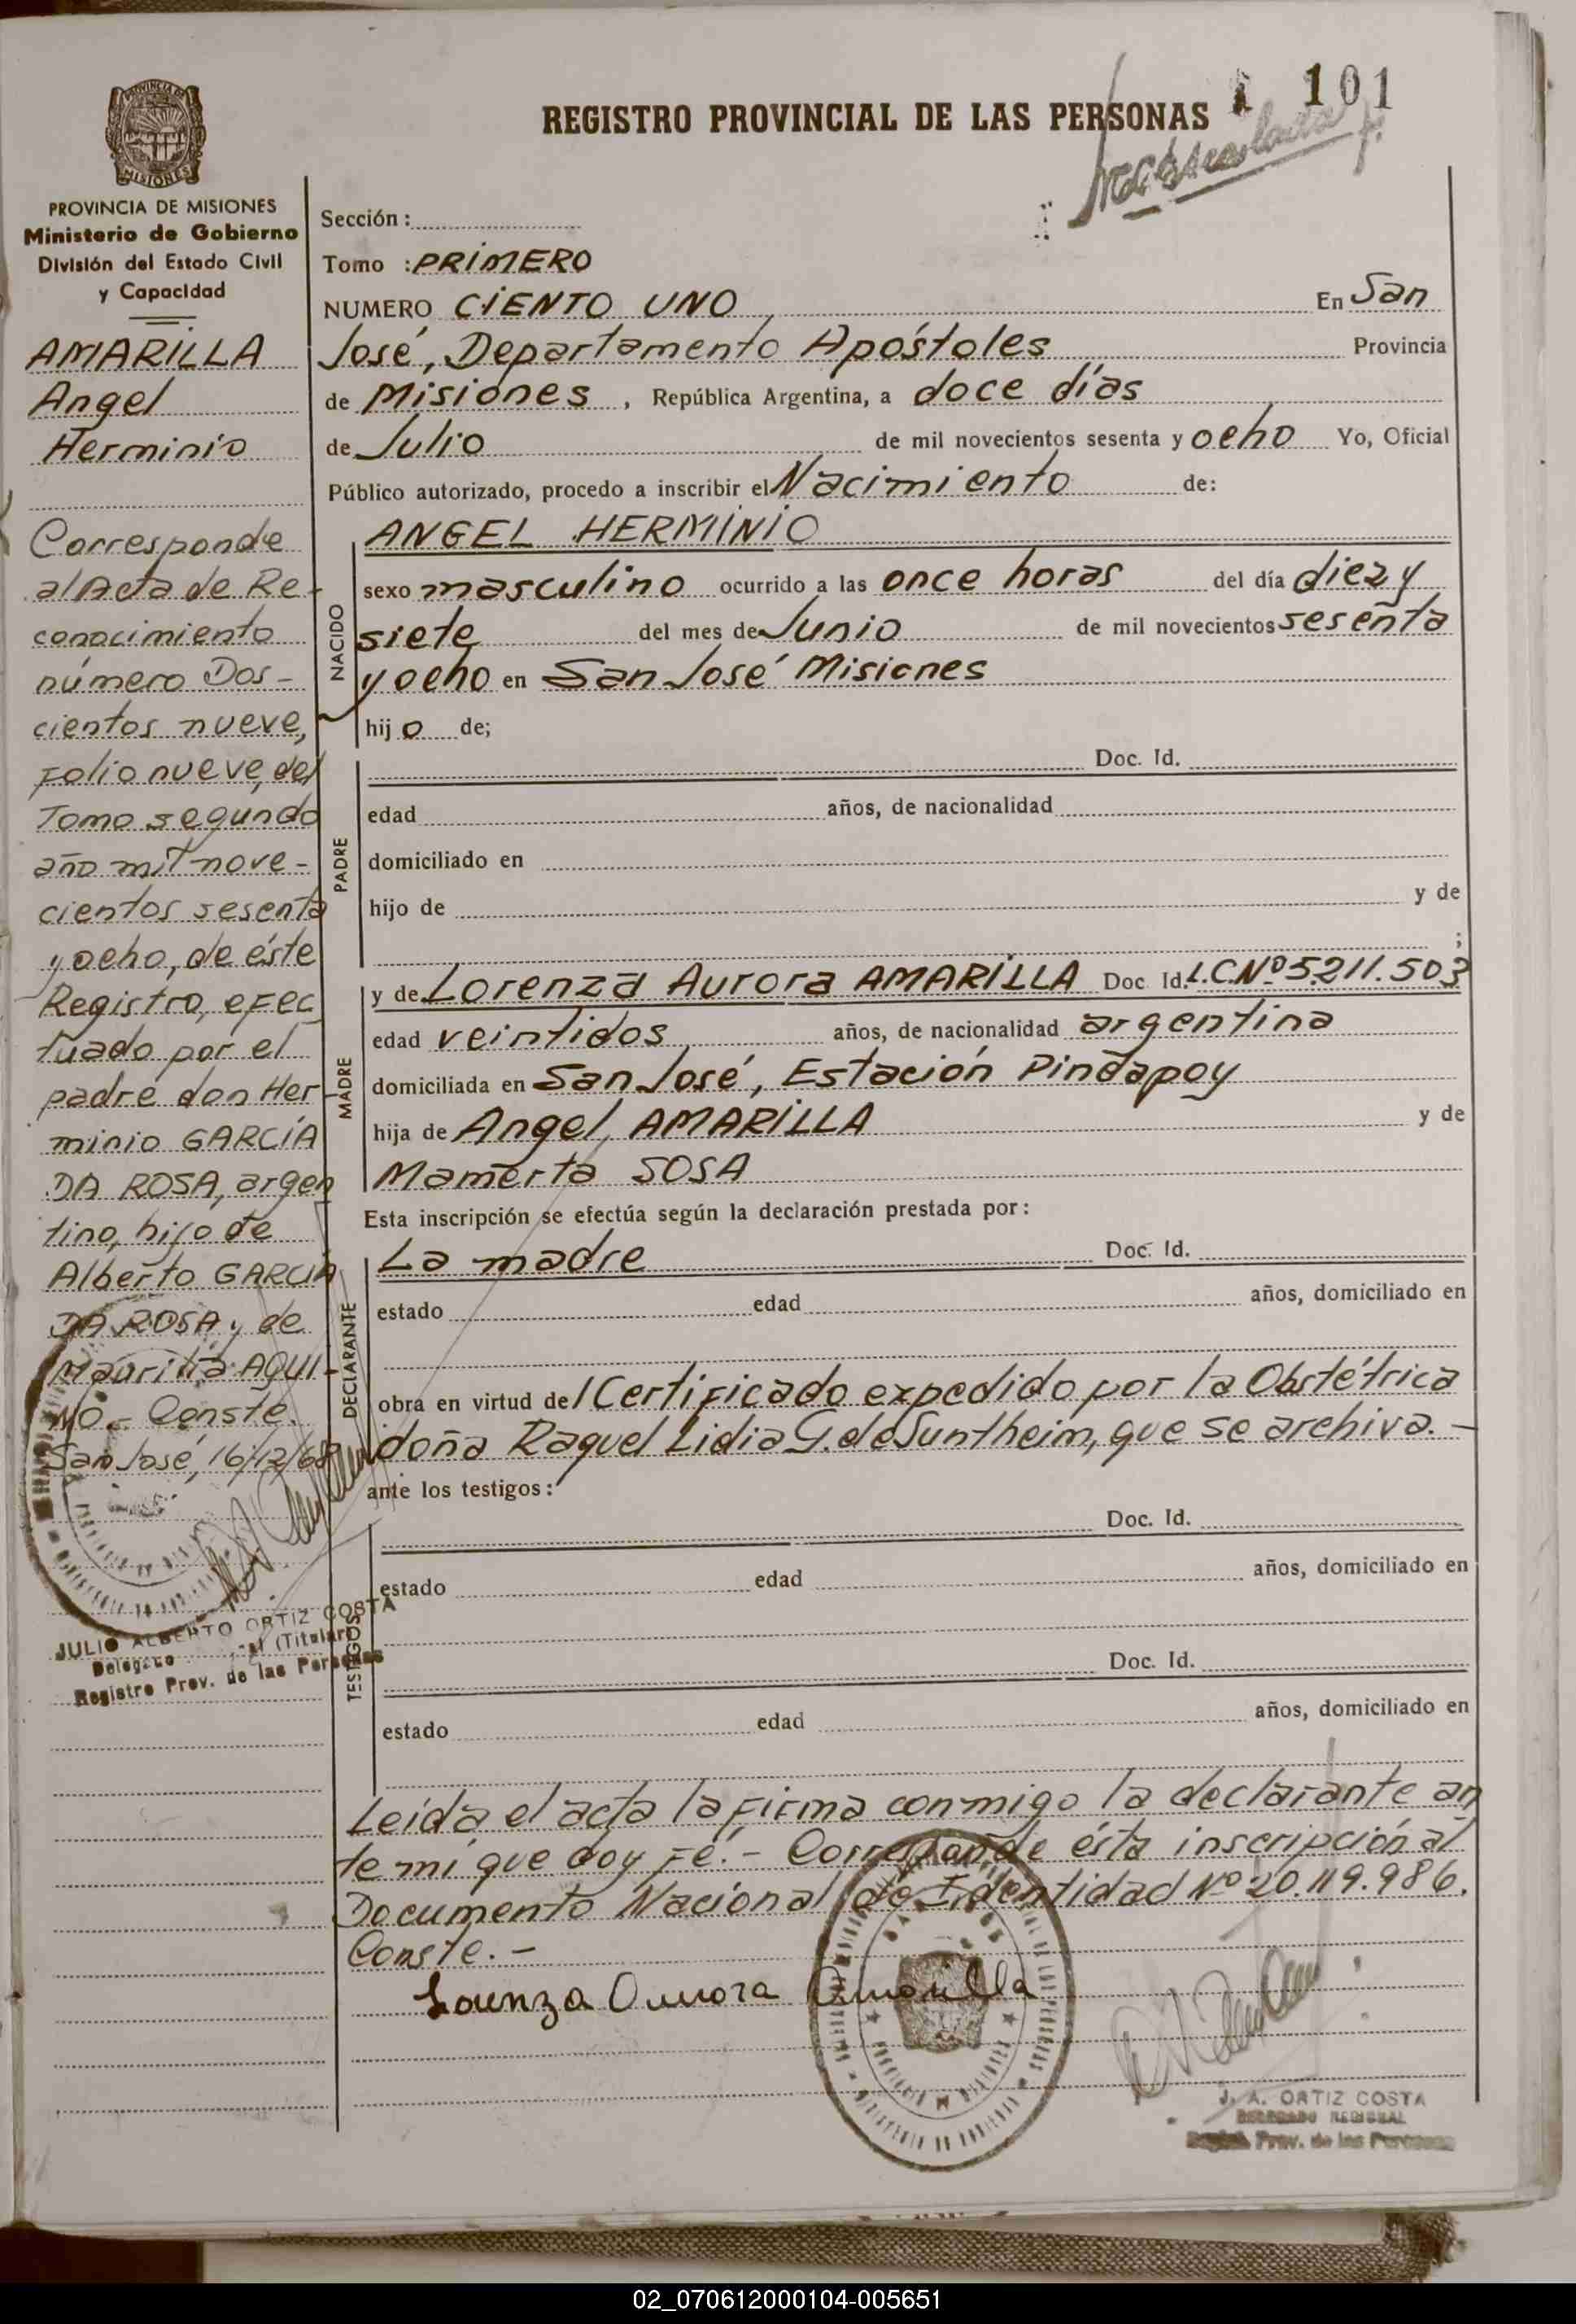 REGISTRO PROVINCIAL DE LAS PERSONAS
101
PROVINCIA DE
MISIONES
PROVINCIA DE MISIONES
Ministerio de Gobierno
División del Estado Civil
y Capacidad
AMARILLA
Angel
Herminio
Corresponde
al Acta de Re-
conocimiento
número Dos-
cientos nueve,
Folio nueve, del
Tomo segundo
año mil nove-
cientos sesenta
y ocho, de éste
Registro, efec
tuado por el
padre don Her
minio GARCÍA
DA ROSA, argen
tino, hijo de
Alberto GARCIA
DA ROSA y de
AQUI-
NO.- Conste.
San José, 16/12/68
JULIO ALBERTO ORTIZ COSTA
(Titular)
Registro Prov. de las Personas
Sección :
Tomo : PRIMERO
NUMERO CIENTO UNO En San
José, Departamento Apóstoles Provincia
de Misiones, República Argentina, a doce días
de Julio de mil novecientos sesenta y ocho Yo, Oficial
Público autorizado, procedo a inscribir el Nacimiento de:
NACIDO
ANGEL HERMINIO
sexo masculino ocurrido a las once horas del día diez y
siete del mes de Junio de mil novecientos sesenta
y ocho en San José Misiones
hijo de;
PADRE
Doc. Id.
edad años, de nacionalidad
domiciliado en
hijo de y de
;
MADRE
y de Lorenza Aurora AMARILLA Doc Id. L.C.Nº 5.211.503
edad veintidos años, de nacionalidad argentina
domiciliada en San José, Estación Pindapoy
hija de Angel AMARILLA y de
Mamerta SOSA
Esta inscripción se efectúa según la declaración prestada por:
DECLARANTE
La madre Doc. Id.
estado edad años, domiciliado en
obra en virtud del Certificado expedido por la Obstétrica
doña Raquel Lidia G. de Suntheim, que se archiva.-
ante los testigos:
TESTIGOS
Doc. Id.
estado edad años, domiciliado en
Doc. Id.
estado edad años, domiciliado en
Leída el acta la firma conmigo la declarante an
te mí que doy fé.- Corresponde ésta inscripción al
Documento Nacional de Identidad Nº 20.119.986.
Conste.-
Lorenza Aurora Amarilla
J. A. ORTIZ COSTA
DELEGADO REGIONAL
Prov. de las Personas
02_070612000104-005651